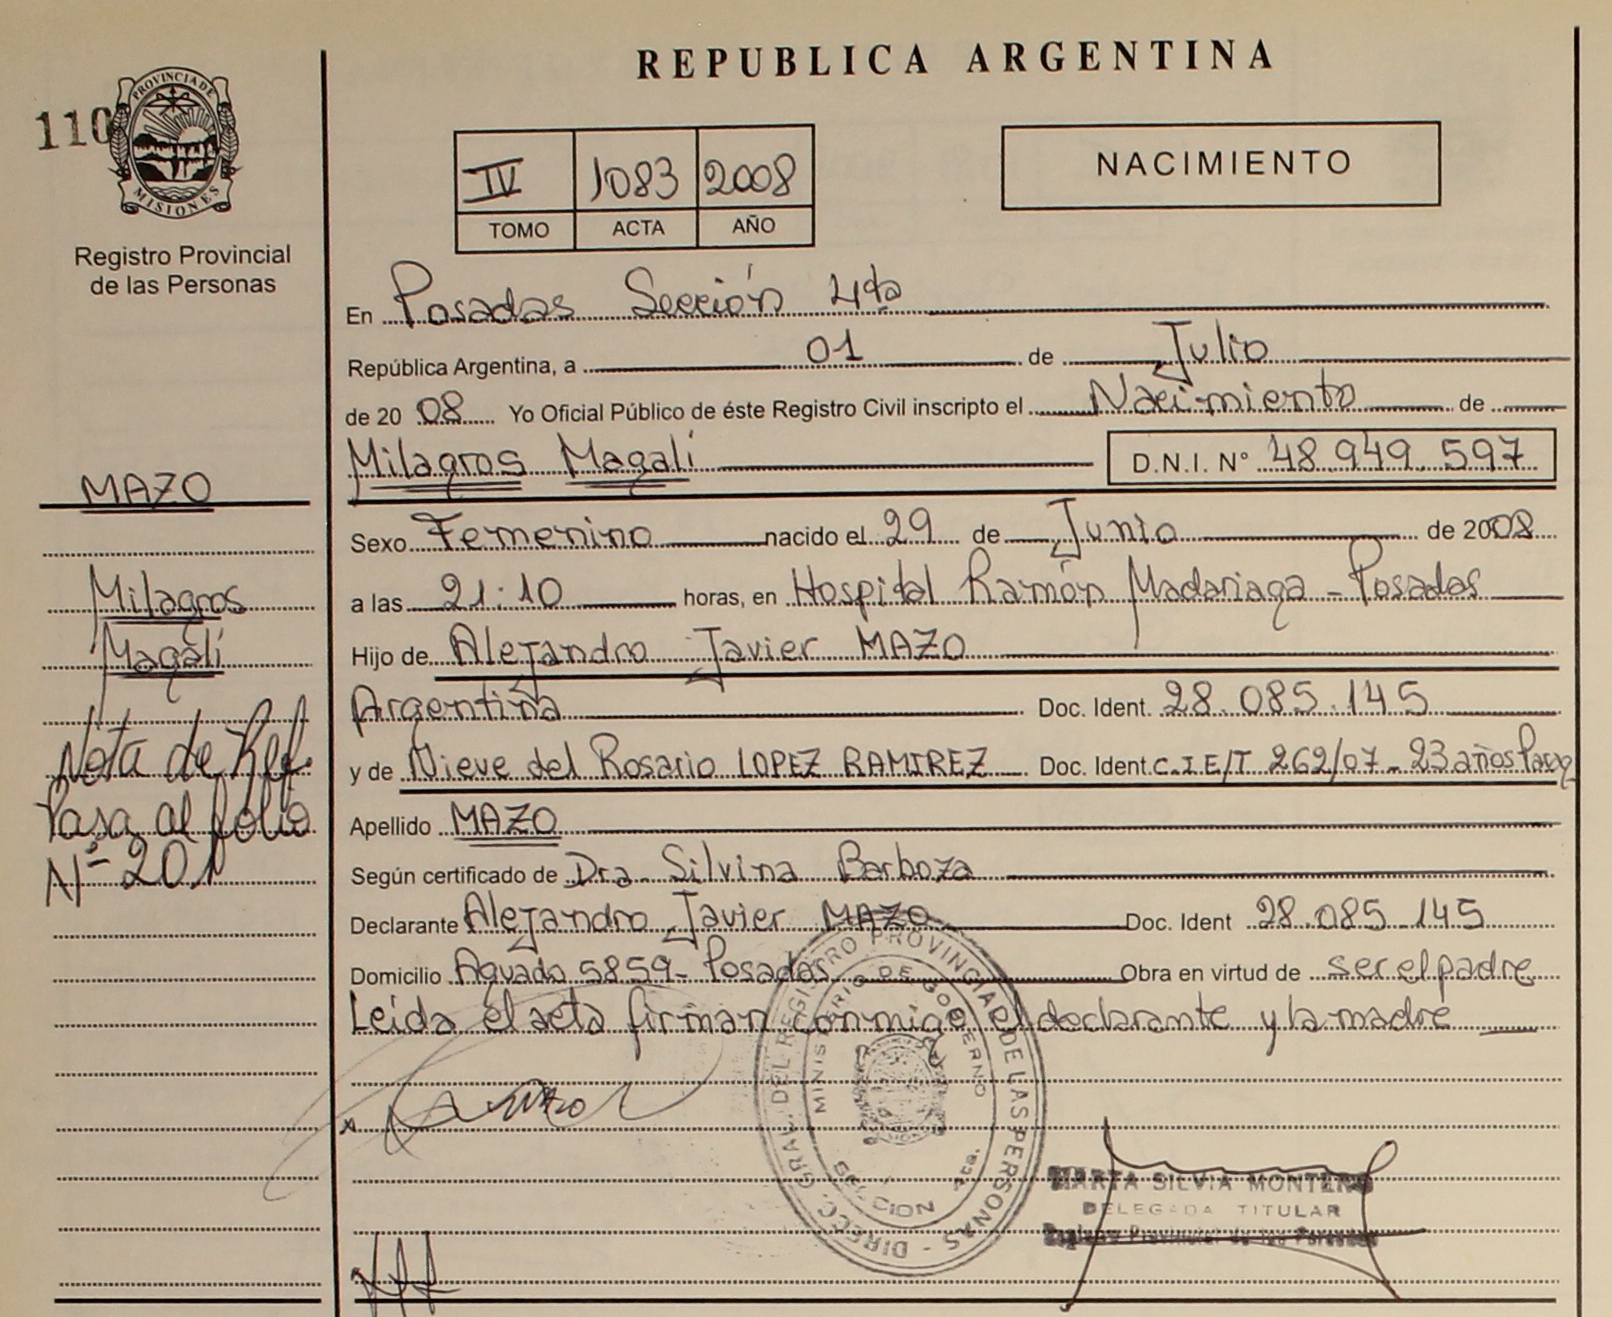 REPUBLICA ARGENTINA
110
PROVINCIA DE
MISIONES
Registro Provincial
de las Personas
IV 1083 2008
TOMO ACTA AÑO
NACIMIENTO
En Posadas Sección 4ta
República Argentina, a 01 de Julio
de 2008 Yo Oficial Público de éste Registro Civil inscripto el Nacimiento de
Milagros Magalí D.N.I. N° 48.949.597
MAZO
Milagros
Magalí
Nota de Ref.
Pasa al folio
Nº 201
Sexo Femenino nacido el 29 de Junio de 2008
a las 21:10 horas, en Hospital Ramón Madariaga - Posadas
Hijo de Alejandro Javier MAZO
Argentina Doc. Ident. 28.085.145
y de Nieve del Rosario LOPEZ RAMIREZ Doc. Ident. C.I E/T 262/07 - 23 años
Apellido MAZO
Según certificado de Dra. Silvina Barboza
Declarante Alejandro Javier MAZO Doc. Ident 28.085.145
Domicilio Aguado 5859 - Posadas Obra en virtud de ser el padre
Leída el acta firman conmigo el declarante y la madre
DIRECC. GRAL. DEL REGISTRO PROVINCIAL DE LAS PERSONAS
MINISTERIO DE GOBIERNO
SECCION 4ta.
MARTA SILVIA MONTERO
DELEGADA TITULAR
Registro Provincial de las Personas